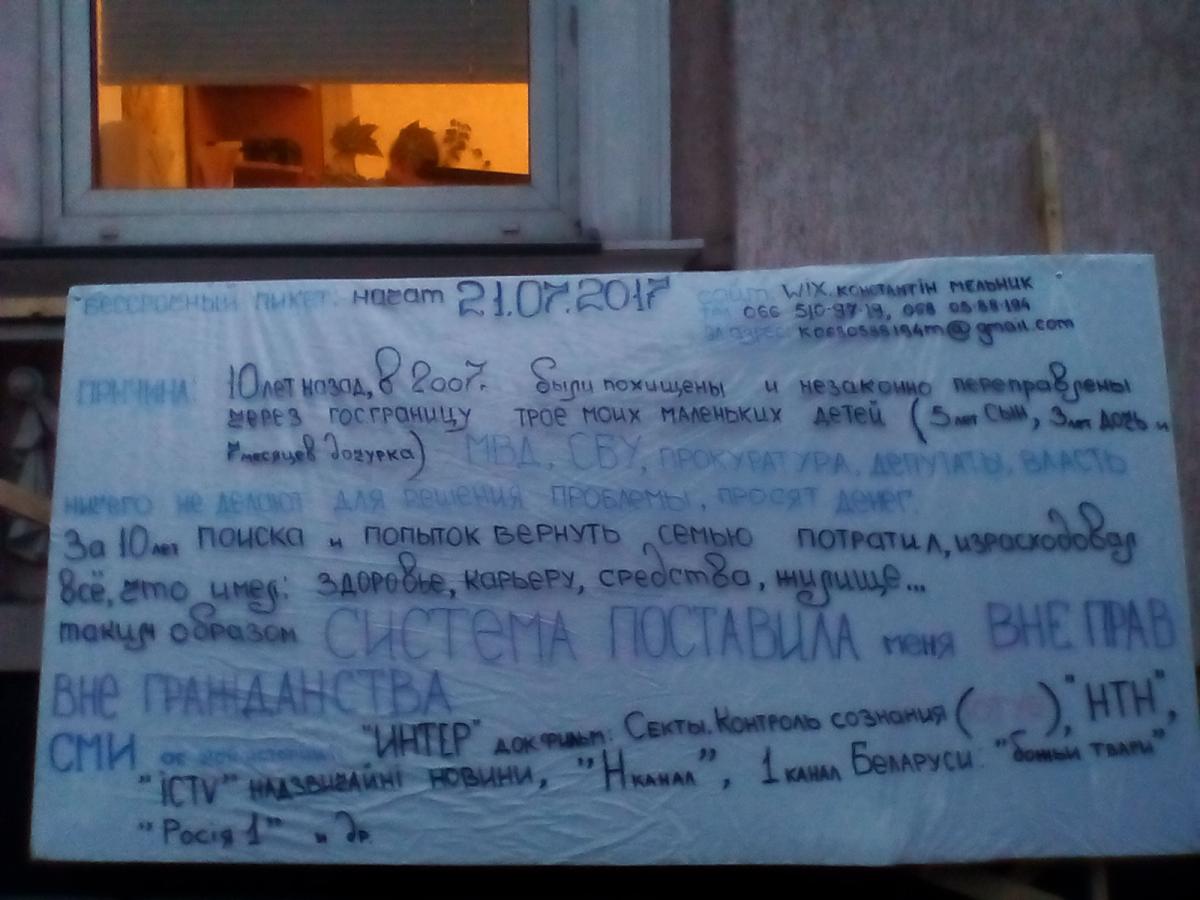 БЕССРОЧНЫЙ ПИКЕТ: начат 21.07.2017
сайт: WIX. КОНСТАНТІН МЕЛЬНИК
тел. 066 510-97-19, 068 05-88-194
эл.адрес: K0680588194m@gmail.com
ПРИЧИНА: 10 лет назад, в 2007г. были похищены и незаконно переправлены
через госграницу трое моих маленьких детей (5 лет сын, 3 лет дочь и
7 месяцев дочурка) МВД, СБУ, ПРОКУРАТУРА, ДЕПУТАТЫ, ВЛАСТЬ
ничего не делают для решения проблемы, просят денег.
За 10 лет поиска и попыток вернуть семью потратил, израсходовал
всё, что имел: здоровье, карьеру, средства, жилище...
таким образом СИСТЕМА ПОСТАВИЛА меня ВНЕ ПРАВ
ВНЕ ГРАЖДАНСТВА
СМИ "ИНТЕР" док фильм: Секты. Контроль сознания ( ), "НТН",
"ICTV" надзвичайні новини, "Н канал", 1 канал Беларуси: "божьи твари"
"Росія 1" и др.